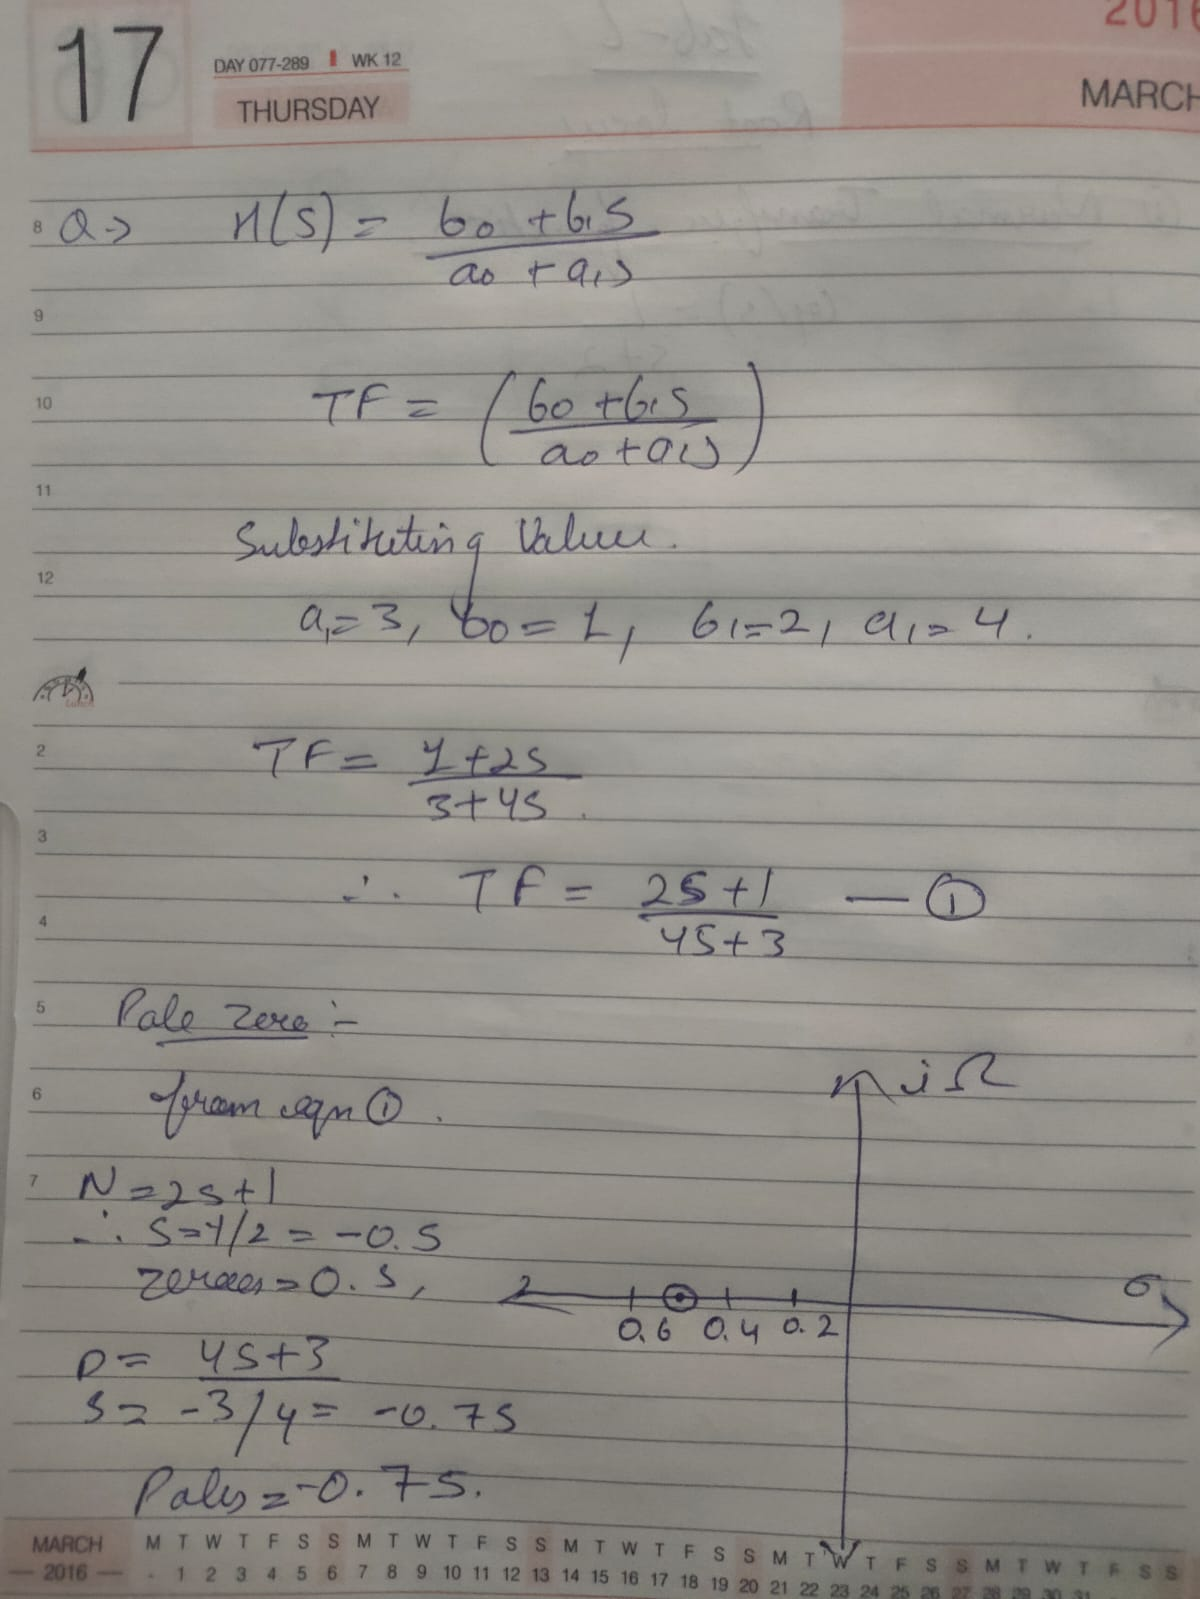 2016
17
DAY 077-289 WK 12
THURSDAY
MARCH
8 Q→ H(S) = b0 + b1S / a0 + a1s
9
10 TF = (b0 + b1S / a0 + a1s)
11
Substituting Value.
12
a1=3, b0 = 1, b1=2, a1=4.
2 TF = 1+2S / 3+4S.
3
∴ TF = 2S+1 / 4S+3 — ①
4
5 Pole Zero :-
jΩ
6 from eqn ①.
7 N = 2s+1
∴ S=-1/2 = -0.5
zeroes = 0.5,
σ
0.6 0.4 0.2
D = 4S+3
S = -3/4 = -0.75
Poles = -0.75.
MARCH M T W T F S S M T W T F S S M T W T F S S M T W T F S S M T W T F S S
2016 - 1 2 3 4 5 6 7 8 9 10 11 12 13 14 15 16 17 18 19 20 21 22 23 24 25 26 27 28 29 30 31